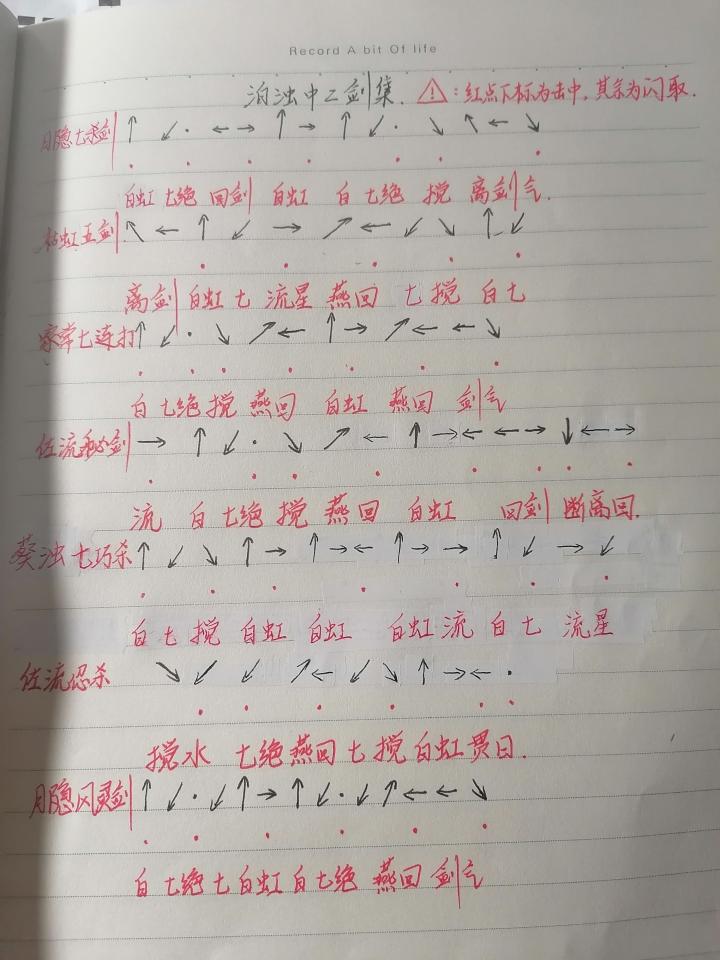 Record A bit Of life
泊浊中二剑集. ⚠:红点下标为击中,其余为闪取.
月隐七杀剑 ↑ ↙ · ←→ ↑ → ↑ ↙ · ↘ ↖ ← ↘
白虹 七绝 回剑 白虹 白 七绝 搅 离剑气.
枯虹五剑 ↖ ← ↑ ↙ → ↗ ← ↙ ↘ ↑ ↙
离剑 白虹 七 流星 燕回 七 搅 白七
家常七连打 ↑ ↙ · ↘ ↗ ← ↑ → ↗ ← ← ↘
白 七绝 搅 燕回 白虹 燕回 剑气
佐流秘剑 → ↑ ↙ · ↘ ↗ ← ↑ → ← ←→ ↓ ←→
流 白 七绝 搅 燕回 白虹 回剑 断离回.
葵浊七巧杀 ↑ ↙ ↘ ↑ → ↑ → ← ↑ → → ↑ ↙ → ↙
白 七 搅 白虹 白虹 白虹 流 白 七 流星
佐流忍杀 ↘ ↙ ↙ ↗ ← ↙ ↘ ↑ → ← ·
搅水 七绝 燕回 七 搅 白虹 贯日.
月隐风灵剑 ↑ ↙ · ↙ ↑ → ↑ ↙ · ↙ ↗ ← ← ↘
白 七绝 七 白虹 白 七绝 燕回 剑气